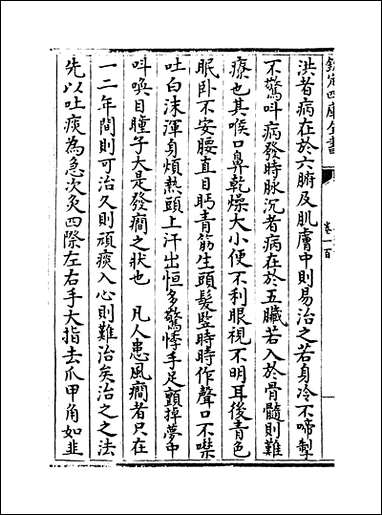 欽定四庫全書
卷一百
洪者病在於六腑及肌膚中則易治之若身冷不啼掣
不驚叫病發時脉沉者病在於五臟若入於骨髓則難
療也其喉口鼻乾燥大小便不利眼視不明耳後青色
眠卧不安腰直目眄青筋生頭髮豎時時作聲口不噤
吐白沫渾身煩熱頭上汗出恒多驚悸手足顫掉夢中
叫喚目瞳子大是發癎之狀也 凡人患風癎者只在
一二年間則可治久則頑痰入心則難治矣治之之法
先以吐痰為急次灸四際左右手大指去爪甲角如韭